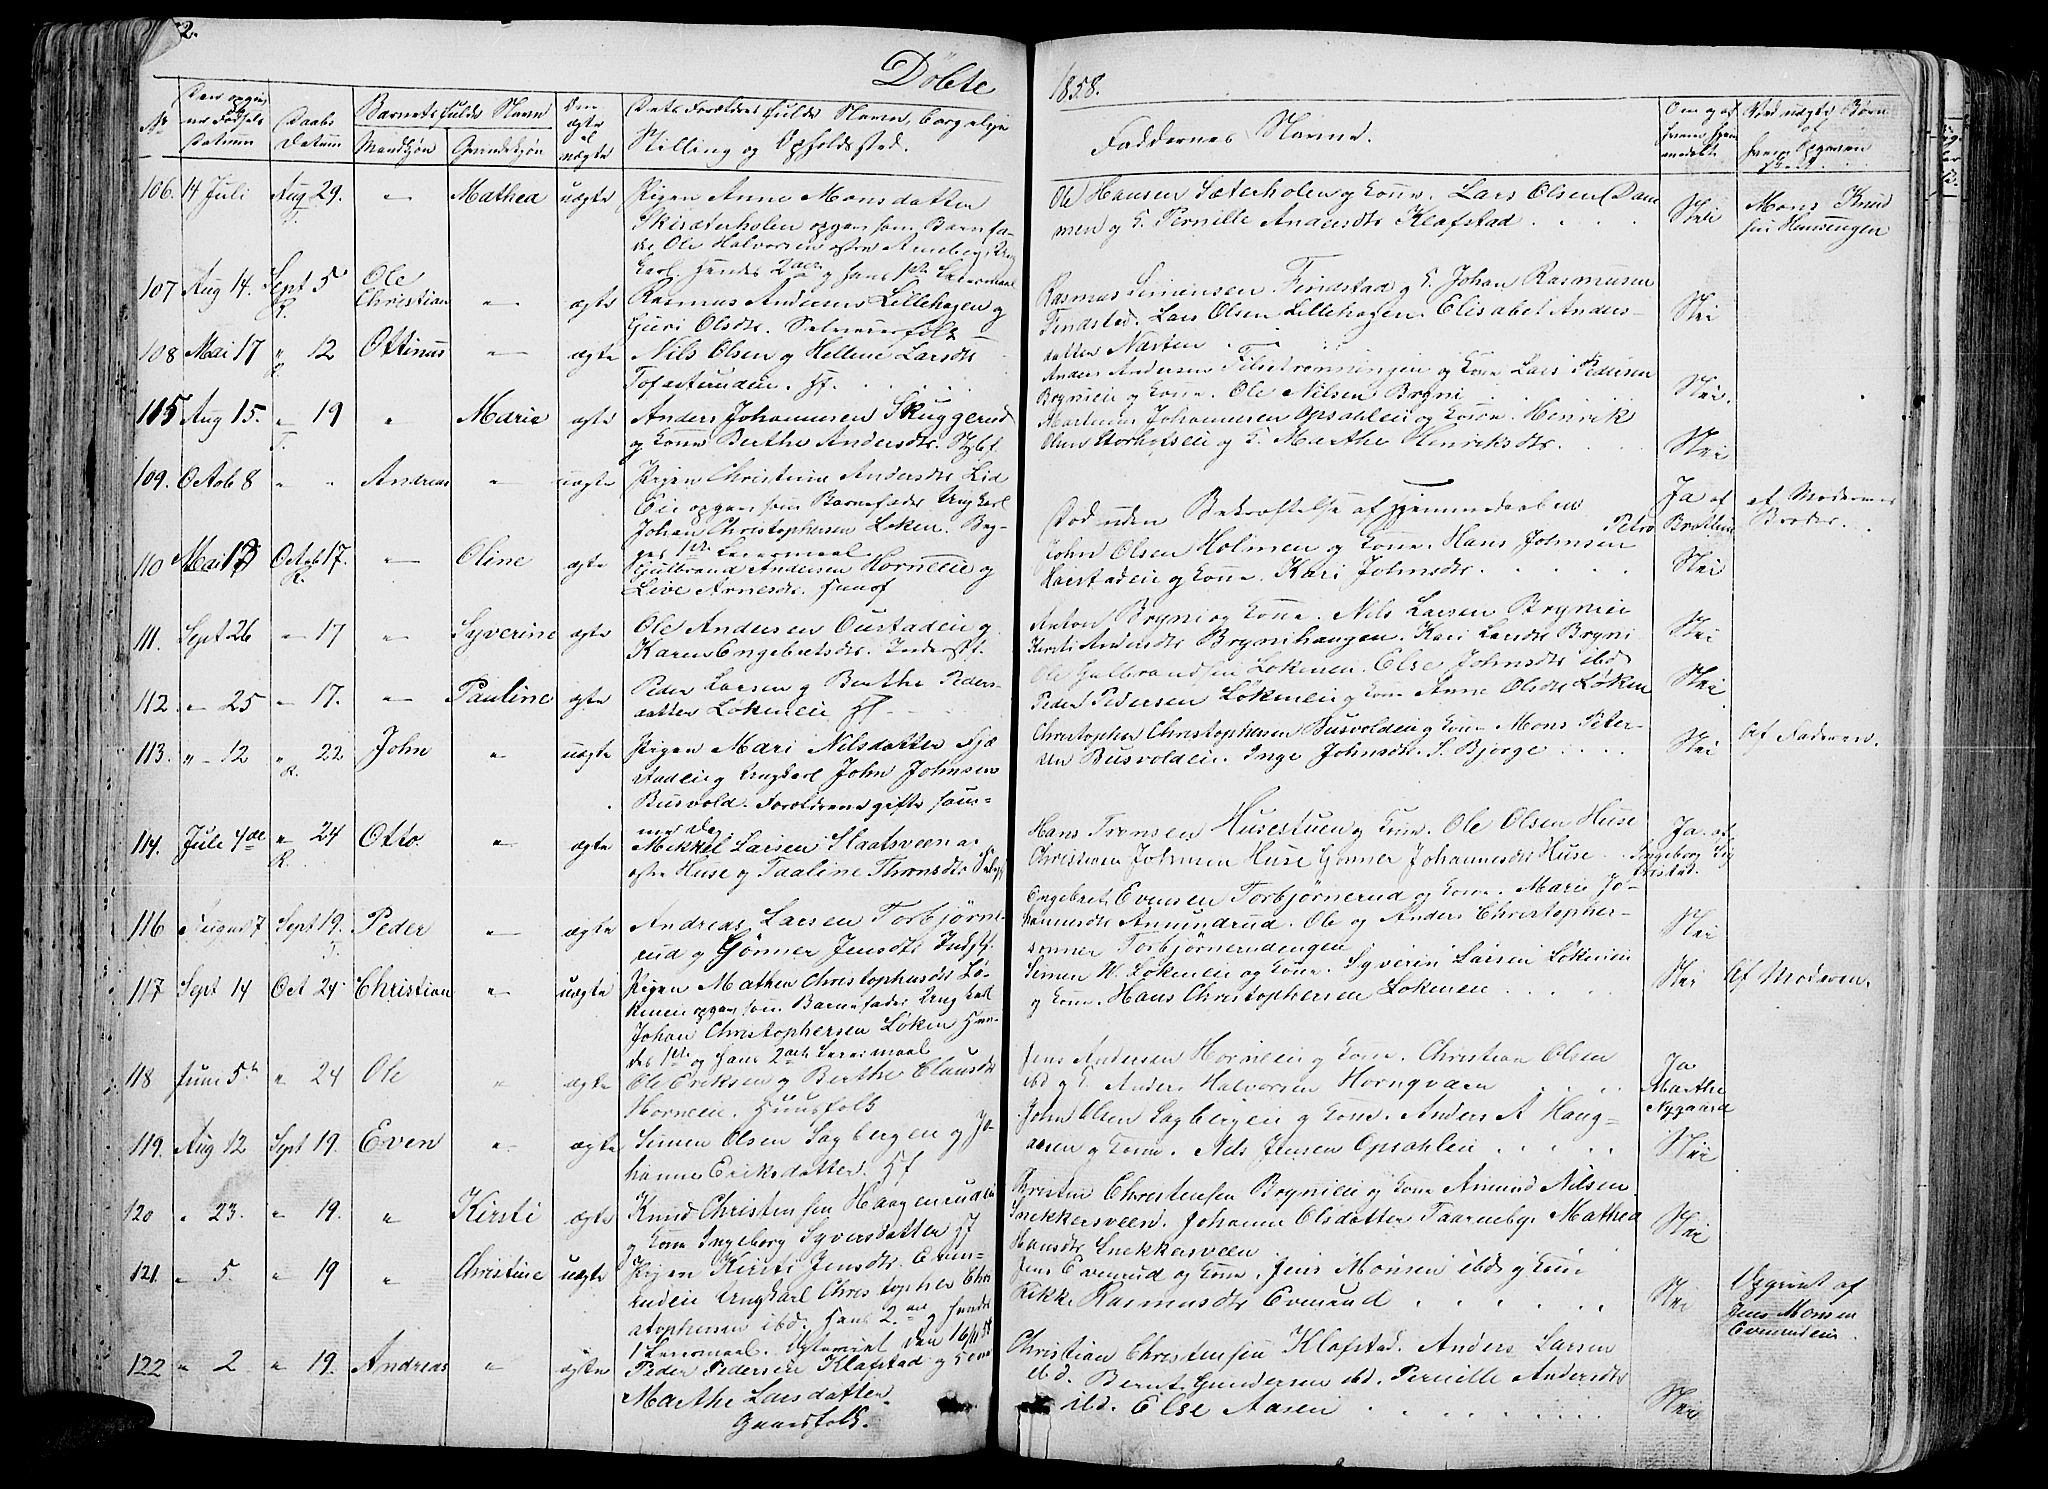 2.
Döbte 1858.
No
Datum
Daabs Datum
Barnets fulde Navn
Mandkjøn
Qvindekjøn
ægte el uægte
Stilling og Opholdssted.
Faddernes Navne.
106. 14 Juli Aug 29. " Mathea uægte Pigen Anne Monsdatter
Ole Halvorsen
Ole Hansen Sæterholen og Kone. Lars Olsen
men og E. Pernille Andersdtr Klofstad Nei
107 Aug 14. Sept 5 Ole Christian " ægte Rasmus Andersen Lillehagen og
Guri Olsdtr. Selveierfolk
Rasmus Simensen Findstad og E. Johan Rasmusen
Findstad. Lars Olsen Lillehagen. Elisabet Anders-
datter Næsten Nei
108 Mai 17 " 12 Ottinus " ægte Nils Olsen og Hellene Larsdtr
Tofastundeie. Hf.
Anders Andersen og Kone Lars Pedersen
Brynieie og Kone. Ole Nilsen Bryni Nei.
115 Aug 15. " 19 " Marie ægte Anders Johannesen Skuggerud
og Kone Berthe Andersdtr.
Martinus Johannesen Opsahleie og Kone. Henrik
Olsen og E. Marthe Henriksdtr. Nei
109. Octob 8 " " Andreas " uægte Pigen Christine Andersdtr Lid
Eie opgav som Barnefader Ungkarl
Johan Christophersen Løken.
Død uden Bekræftelse af Hjemmedaaben
Ja af
af Moderens
Broder.
110 Mai 17 Octob 17. " Oline ægte Gulbrand Andersen Horneeie og
Live Arnesdtr. Huusf
John Olsen Holmen og Kone. Hans Johnsen
og Kone. Kari Johnsdtr. Nei
111. Sept 26 " 17 " Syverine ægte Ole Andersen Oustadeie og
Karen Engebretsdtr. Inderst.
Anton Bryni og Kone. Nils Larsen Brynieie
Kirsti Andersdtr Brynihaugen. Kari Larsdtr Bryni Nei
112 " 25 " 17. " Pauline ægte Peder Larsen og Berthe Peders-
datter Løkeneie Hf
Ole Gulbrandsen Løkenen. Else Johnsdtr ibd
Peder Pedersen Løkeneie og Kone Anne Olsdtr Løken Nei
113. " 12 " 22 John " uægte Pigen Mari Nilsdatter Fjæ
stadeie og Ungkarl John Johnsen
Busvold. Forældrene gifte sam-
me Dag
Christopher Christophersen Busvoldeie og Kone Mons Peter-
sen Busvoldeie. Inge Johnsdtr. S. Bjørge Nei Af Faderen.
114. Jule 4de " 24 Otto. " ægte Mikkel Larsen Slaatsveen
østre Huse og Taaline Thronsdtr
Hans Tronsen Husestuen og Kone. Ole Olsen Huse
Christian Johnsen Huse Gønner Johannesdtr Huse Ja af
Ingeborg
116 August 7 Sept 19. Peder " ægte Andreas Larsen Torbjørne-
rud og Gønner Jensdtr
Engebret Evensen Torbjørnerud og Kone. Marie Jo-
hannesdtr Amundrud. Ole og Anders Christopher-
sønner Torbjørnerudengen Nei
117 Sept 14 Oct 24 Christian " uægte Pigen Mathea Christophersdtr Lø-
kenen opgav som Barnefader Ungkarl
Johan Christophersen Løken Hen-
des 1ste og hans 2det Leiermaal
Simen H. Løkeneie og Kone. Syverin Larsen Løkeneie
og Kone. Hans Christophersen Løkeneie Nei Af Moderen.
118 Juni 5te " 24 Ole " ægte Ole Eriksen og Berthe Clausdtr
Horneeie. Huusfolk
Jens Andersen Horneeie og Kone. Christian Olsen
ibd og E. Anders Halvorsen Hornqvaen
Ja
Marthe
Nygaard
119. Aug 12 Sept 19. Even " ægte Simen Olsen Sagbergen og Jo-
hanne Eriksdatter. Hf
John Olsen Sagbergeie og Kone. Anders A Haug-
aasen og Kone. Nils Jensen Opsahleie Nei
120 " 23. " 19. " Kirsti ægte Knud Christensen Haagenrudeie
og Kone Ingeborg Syversdatter Hf
Christen Christensen Brynieie og Kone Amund Nilsen
Snekkersveen. Johanne Olsdatter Taarneby. Mathea
Hansdtr Snekkersveen Nei
121. " 5. " 19 " Christine uægte Pigen Kirsti Jensdtr. Even-
rudeie Ungkarl Christopher Chri
stophersen ibd. Hans 2det og hendes
1 Leiermaal.
Jens Evenrud og Kone. Jens Monsen ibd og Kone
Rikke Rasmusdtr Evenrud Nei
Opgivet af
Jens Monsen
Evenrudeie.
122 " 2 " 19. Andreas " ægte Peder Pedersen Klofstad og Kone
Marthe Larsdatter
Gaardfolk.
Christian Christensen Klofstad. Anders Larsen
ibd. Bernt Gundersen ibd. Pernille Andersdtr
ibd. Else Aasen Nei